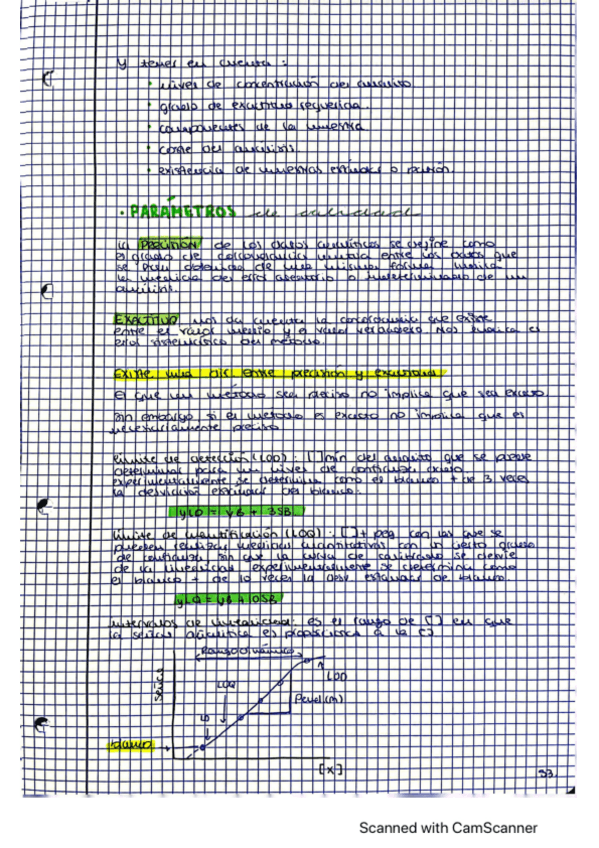 Y tener en cuenta :
• nivel de concentración del analito
• grado de exactitud requerida.
• componentes de la muestra
• coste del análisis.
• existencia de muestras
• PARÁMETROS de calidad
la PRECISIÓN de los datos analíticos se define como
el grado de concordancia mutua entre los datos que
se han obtenido de una misma forma
la medida del error aleatorio o indeterminado de un
análisis.
EXACTITUD nos da cuenta la concordancia que existe
entre el valor medio y el valor verdadero Nos indica el
error sistemático del método.
Existe una dif. entre precisión y exactitud
El que un método sea preciso no implica que sea exacto
sin embargo si el método es exacto no implica que es
necesariamente preciso
límite de detección (LOD) : [ ] min del analito que se puede
determinar para un nivel de confianza dado.
experimentalmente se determina como el blanco + de 3 veces
la desviación estándar del blanco.
yLD = yB + 3SB.
límite de cuantificación (LOQ) : [ ] + peq con las que se
pueden realizar medidas cuantitativas con un cierto grado
de confianza sin que la curva de calibrado se desvíe
de la linealidad experimentalmente se determina como
el blanco + de 10 veces la desv estándar de blanco.
yLQ = yB + 10SB
Intervalos de linealidad: es el rango de [ ] en que
la señal analítica es proporcional a la [ ]
Rango dinámico
señal
LOQ
LOD
Pend (m)
LD
blanco
[X]
33.
Scanned with CamScanner